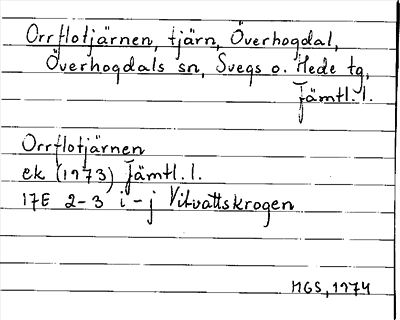 Orrflotjärnen, tjärn, Överhogdal,
Överhogdals sn, Svegs o. Hede tg,
Jämtl. l.
Orrflotjärnen
ek (1973) Jämtl. l.
17E 2-3 i-j Vitvattskrogen
MGS, 1974